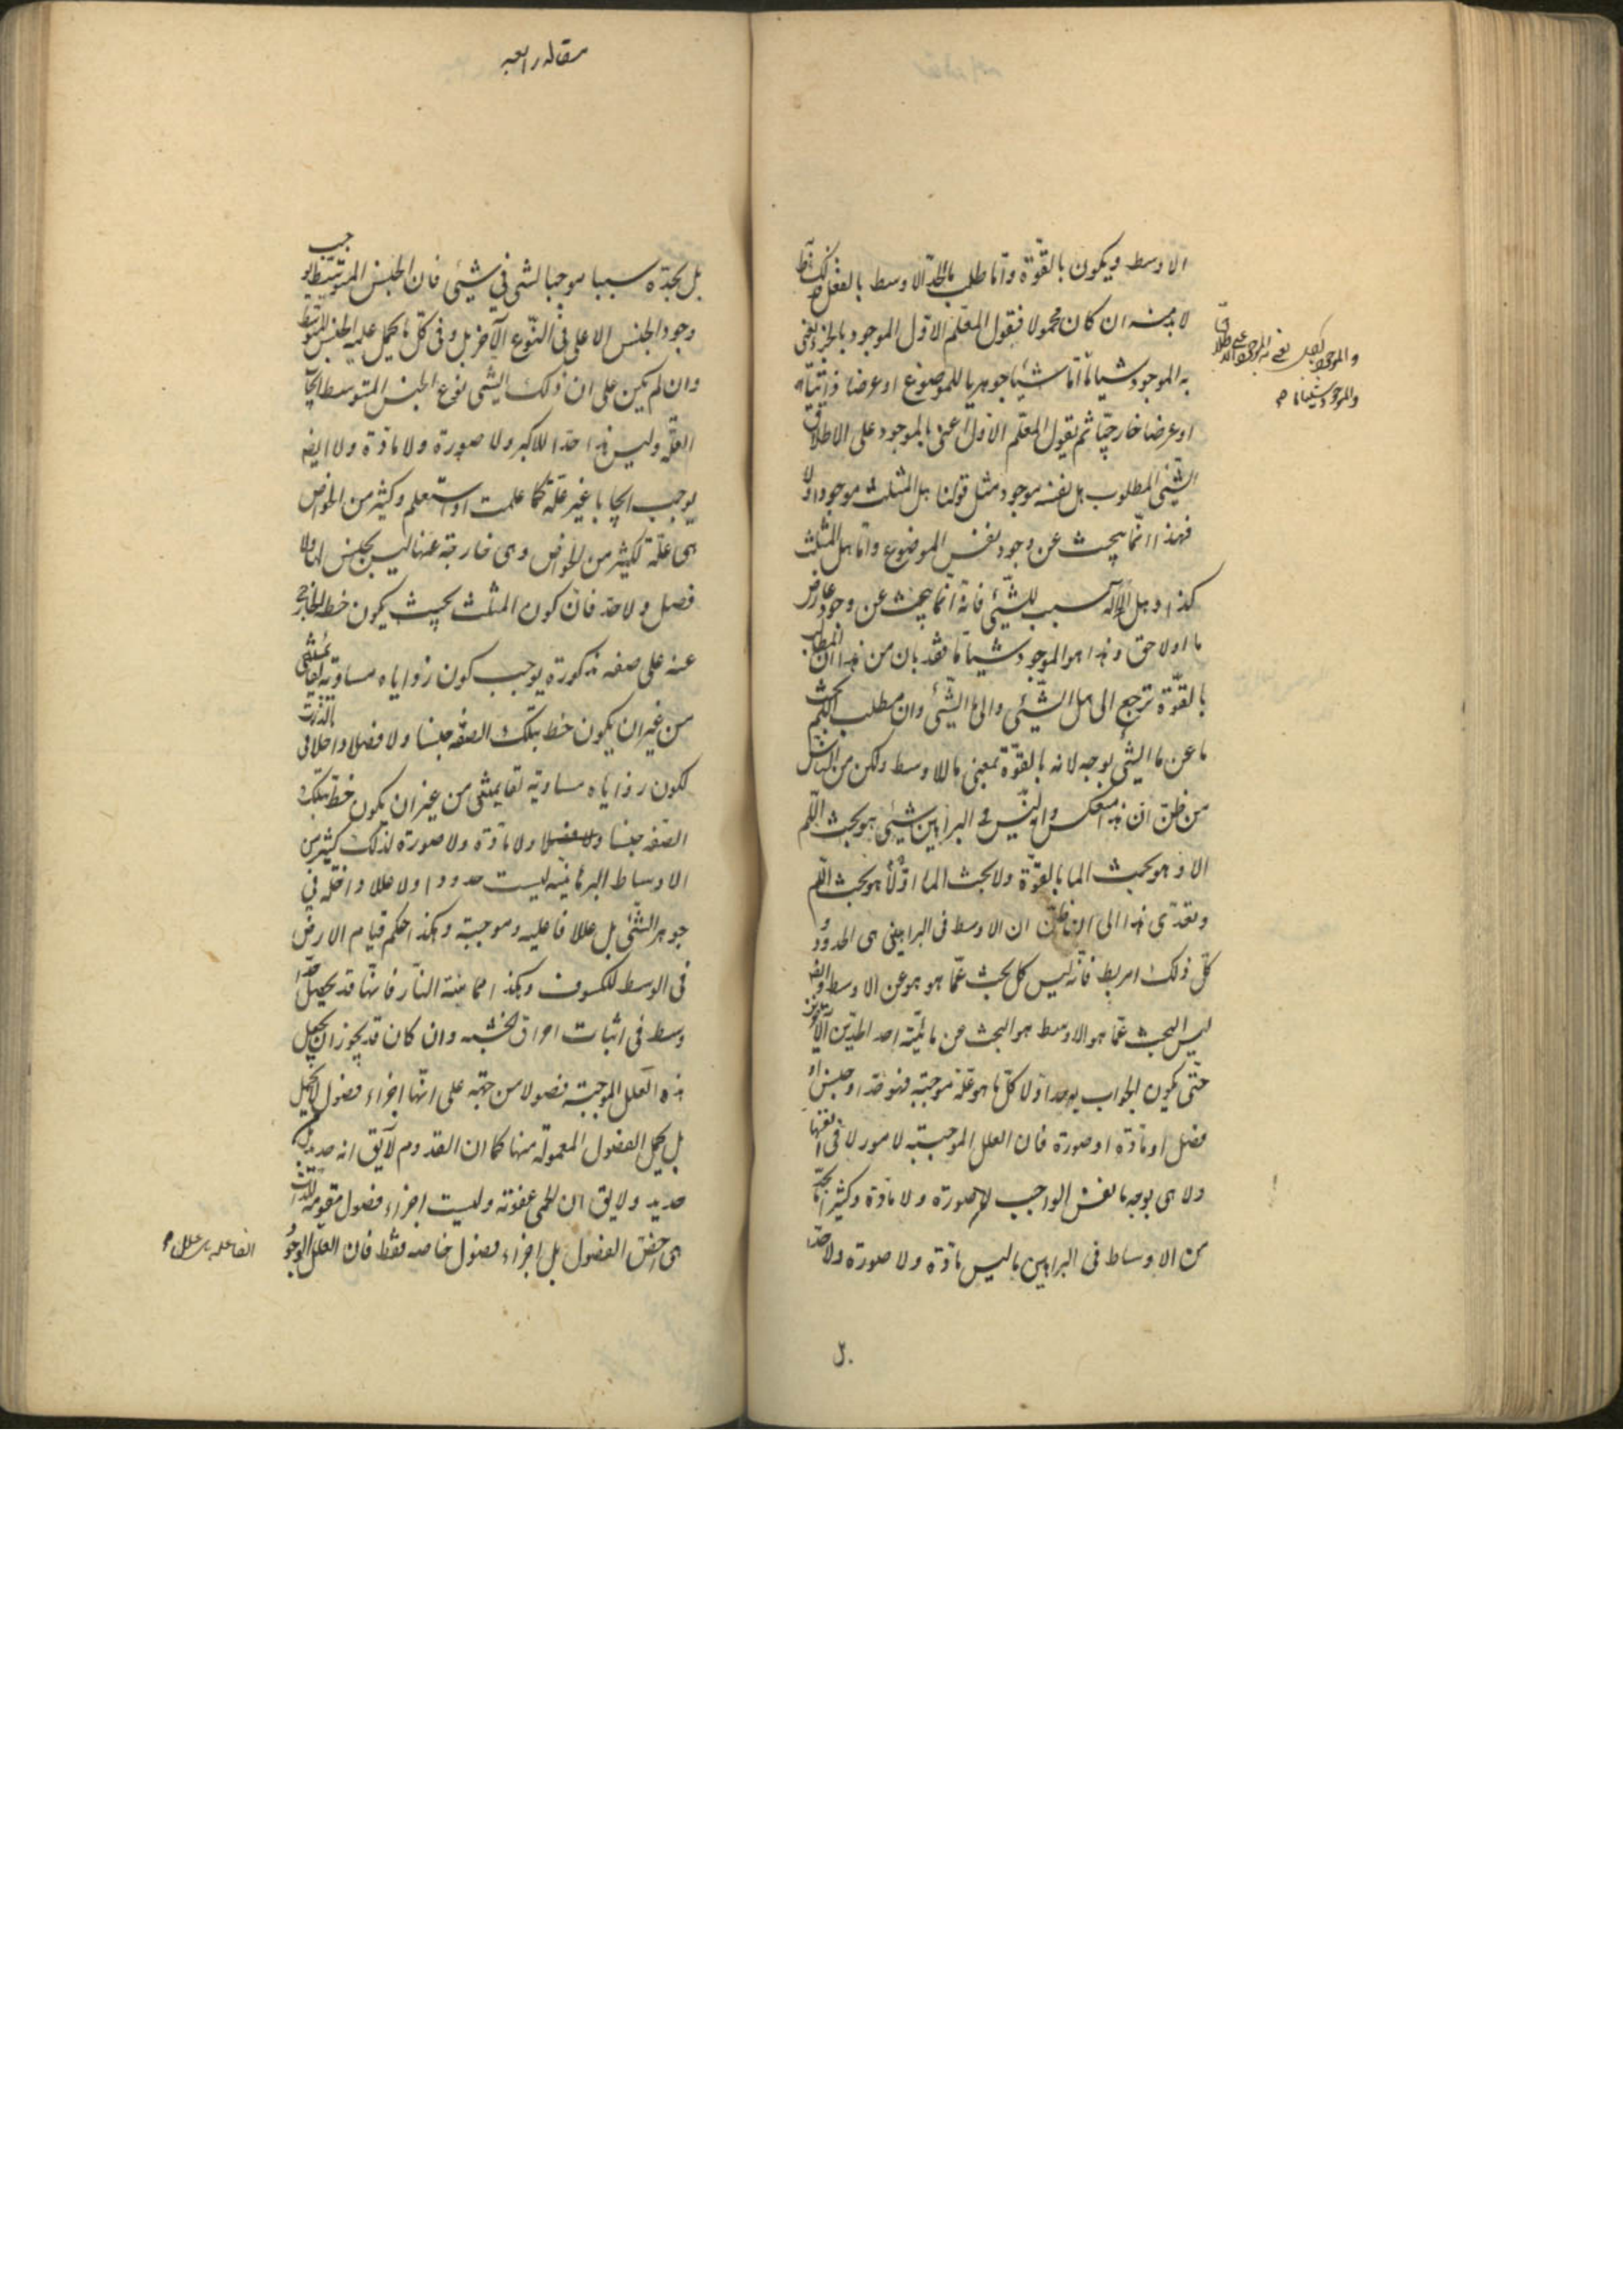 الاوسط ويكون بالقوة واما طلب ما الحد الاوسط بالفعل فذلك
لا بد منه ان كان محمولا فنقول المعلم الاول الموجود بالجزء يعنى
به الموجود شيئا ما اما شيئا جوهريا للموضوع او عرضا ذاتيا له
او عرضا خارجيا ثم يقول المعلم الاول اعنى بالموجود على الاطلاق
الشئ المطلوب هل نفسه موجود مثل قولنا هل المثلث موجود او لا
فهذا انما يبحث عن وجود نفس الموضوع واما هل المثلث
كذا او هل الاله سبب للشئ فانه انما يبحث عن وجود عارض
ما او لاحق وهذا هو الموجود شيئا ما فقد بان من هذا ان المطالب
بالقوة ترجع الى هل الشئ والى ما الشئ وان مطلب اللم يبحث
ما عن ما الشئ بوجه لانه بالقوة بمعنى ما الاوسط ولكن من الناس
من ظن ان هذا منعكس وانه ليس فى البراهين شئ هو بحث اللم
الا وهو بحث الما بالقوة ولا بحث الما اولا هو بحث اللم
وتعدى هذا الى ان ظن ان الاوسط فى البراهين هى الحدود و
كل ذلك امر بط فانه ليس كل بحث عما هو هو عن الاوسط وايضا
ليس البحث عما هو الاوسط هو البحث عن مائية احد الحدين الآخرين
حتى يكون الجواب به حدا ولا كل ما هو علة موجبة فهو حد او جنس او
فصل او مادة او صورة فان العلل الموجبة لامور لا فى انفسها
ولا هى بوجه ما نفس الواجب لا صورة ولا مادة وكثيرا ما نجد
من الاوساط فى البراهين ما ليس مادة ولا صورة ولا حدا
والموجود شيئا ما
مقاله رابعه
بل نجده سببا موجبا لشئ فى شئ فان الجنس المتوسط يوجب
وجود الجنس الاعلى فى النوع الآخر بل وفى كل ما يحمل عليه الجنس المتوسط
وان لم يكن على ان ذلك الشئ نوع الجنس المتوسط ايجاب
العلة وليس هذا حدا للاكبر ولا صورة ولا مادة ولا ايضا
يوجب ايجابا غير علة كما علمت او ستعلم وكثير من الخواص
هى علة لكثير من الخواص وهى خارجة عنها ليس بجنس لها ولا
فصل ولا حد فان كون المثلث بحيث يكون خط الخارج
عنه على صفه مذكورة يوجب كون زواياه مساوية لقائمتين
من غير ان يكون خط بتلك الصفه جنسا ولا فصلا داخلا فى
لكون زواياه مساوية لقائمتين من غير ان يكون خط بتلك
الصفه جنسا ولا فصلا ولا مادة ولا صورة لذلك كثير من
الاوساط البرهانيه ليست حدودا ولا عللا داخله فى
جوهر الشئ بل عللا فاعليه وموجبة وهكذا حكم قيام الارض
فى الوسط للكسوف وهكذا مماسة النار فانها قد تجعل حدا
وسط فى اثبات احراق الخشبه وان كان قد يجوز ان يجعل
هذه العلل الموجبة فصولا من جهة على انها اجزاء فصول لا تحمل
بل يحمل الفصول المعمولة منها كما ان القدوم لا يق انه حديد بل من
حديد ولا يق ان الحمى عفونة وليست اجزاء فصول مقومة للذات
هى اخص الفصول بل اجزاء فصول خاصه فقط فان العلل الوجود
الفاعليه